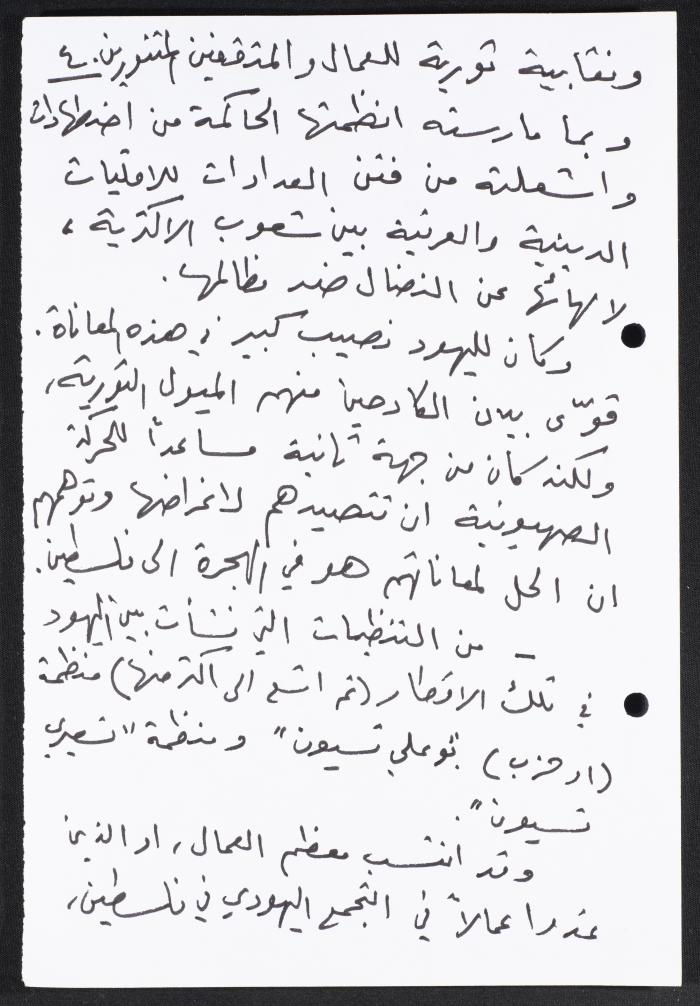 ونقابية ثورية للعمال والمثقفين المتنورين. ٤
وبما مارسته انظمتها الحاكمة من اضطهادات
واشعلته من فتن العداوات للاقليات
الدينية والعرقية بين شعوب الاكثرية،
لالهائها عن النضال ضد مظالمها.
وكان لليهود نصيب كبير في هذه المعاناة.
قوّى بين الكادحين منهم الميول الثورية،
ولكنه كان من جهة ثانية مساعداً للحركة
الصهيونية ان تتصيدهم لاغراضها وتوهمهم
ان الحل لمعاناتهم هو في الهجرة الى فلسطين.
– من التنظيمات التي نشأت بين اليهود
في تلك الاقطار (ثم اتسع الى اكثر منها) منظمة
(او حزب) بوعلي تسيون" ومنظمة "تسعيري
تسيون".
وقد انتسب معظم العمال، او الذين
غدوا عمالاً في التجمع اليهودي في فلسطين،